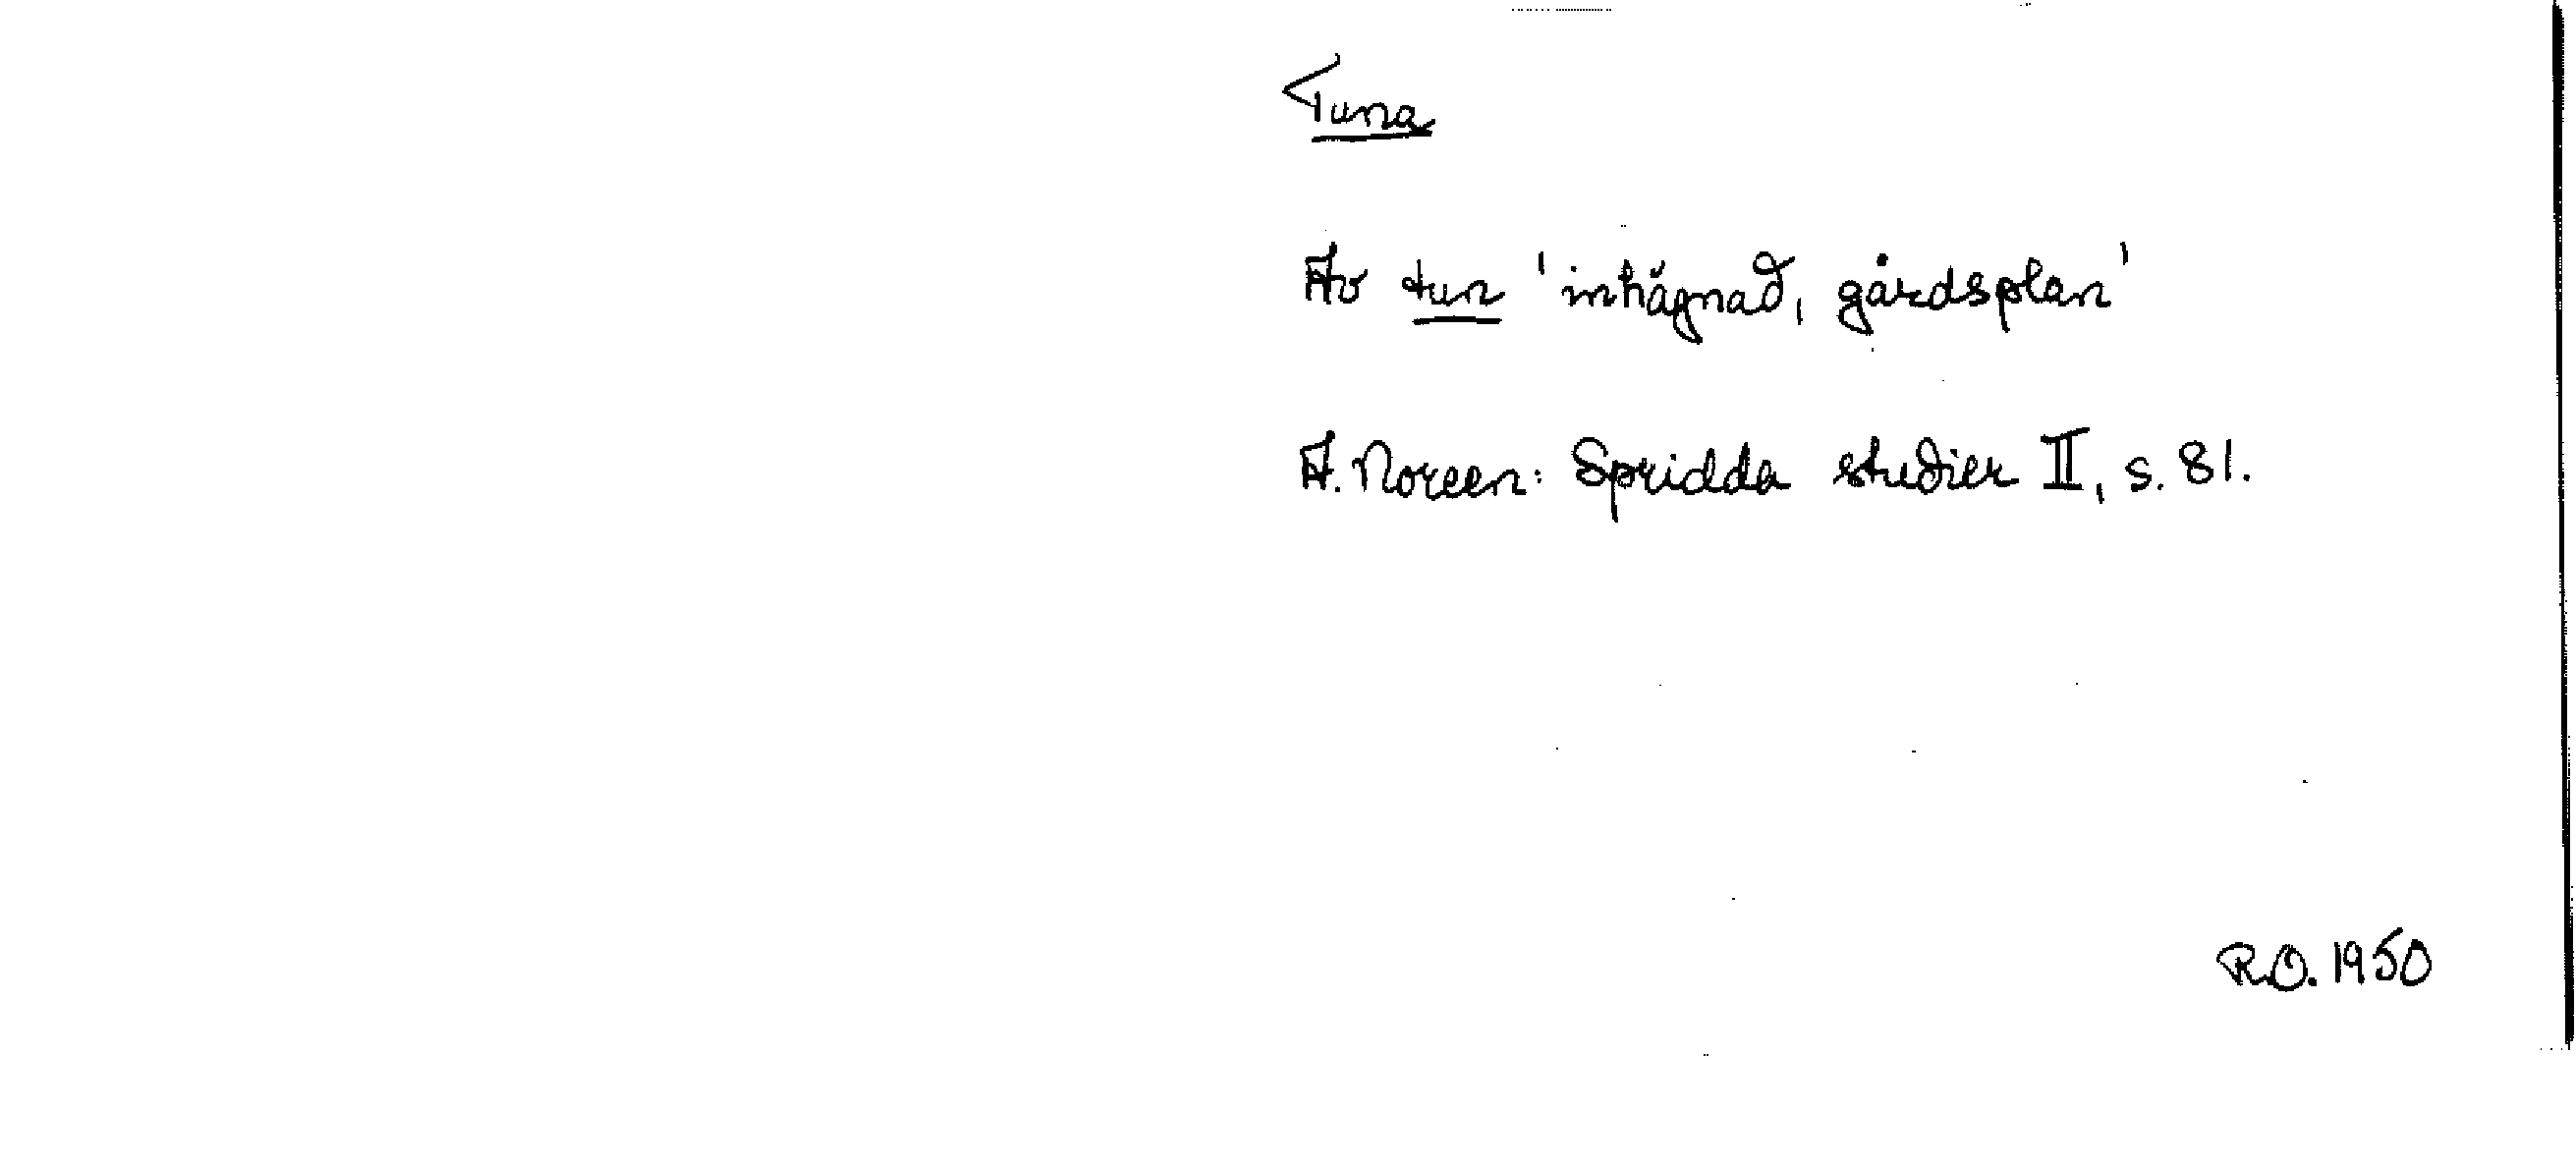 Tuna
Av tun 'inhägnad, gårdsplan'
A. Noreen: Spridda studier II, s. 81.
R.O. 1950